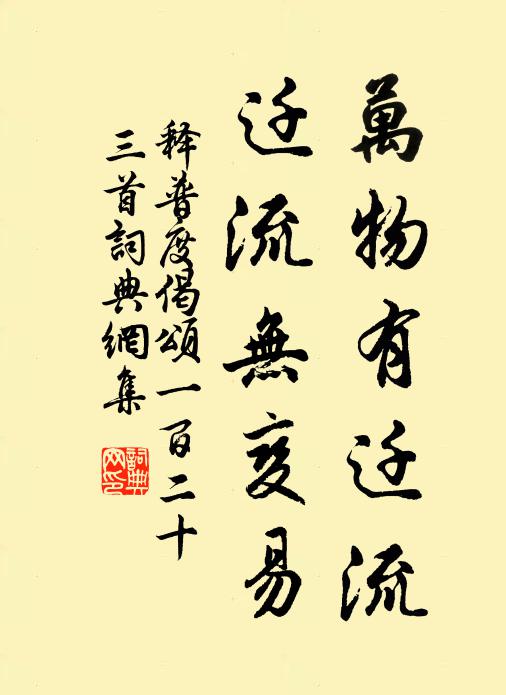 萬物有迁流
迁流無变易
释普度偈頌一百二十
三首詞典網集
詞典网印